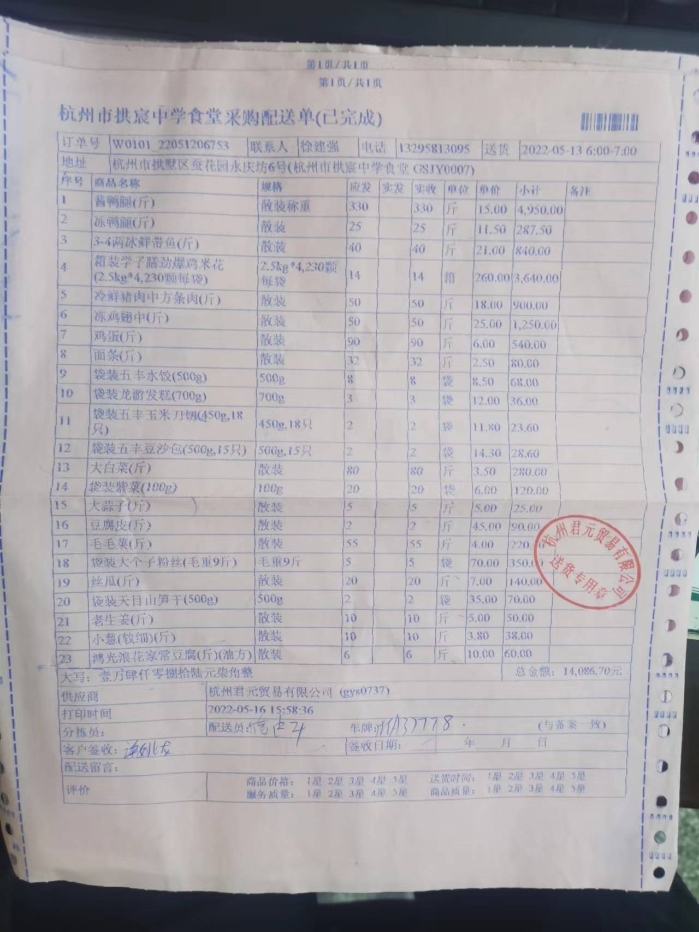 第1页/共1页
第1页/共1页
杭州市拱宸中学食堂采购配送单(已完成)
订单号 W0101_22051206753 联系人 徐建强 电话 13295813095 送货 2022-05-13 6:00-7:00
地址 杭州市拱墅区蚕花园永庆坊6号(杭州市拱宸中学食堂 GSJY0007)
序号 商品名称 规格 应发 实发 实收 单位 单价 小计 备注
1 酱鸭腿(斤) 散装称重 330 330 斤 15.00 4,950.00
2 冻鸭腿(斤) 散装 25 25 斤 11.50 287.50
3 3-4两冰鲜带鱼(斤) 散装 40 40 斤 21.00 840.00
4 箱装学子膳劲爆鸡米花 2.5kg*4,230颗 14 14 箱 260.00 3,640.00
(2.5kg*4,230颗每袋) 每袋
5 冷鲜猪肉中方条肉(斤) 散装 50 50 斤 18.00 900.00
6 冻鸡翅中(斤) 散装 50 50 斤 25.00 1,250.00
7 鸡蛋(斤) 散装 90 90 斤 6.00 540.00
8 面条(斤) 散装 32 32 斤 2.50 80.00
9 袋装五丰水饺(500g) 500g 8 8 袋 8.50 68.00
10 袋装龙游发糕(700g) 700g 3 3 袋 12.00 36.00
11 袋装五丰玉米刀切(450g,18 450g,18只 2 2 袋 11.80 23.60
只)
12 袋装五丰豆沙包(500g,15只) 500g,15只 2 2 袋 14.30 28.60
13 大白菜(斤) 散装 80 80 斤 3.50 280.00
14 袋装紫菜(100g) 100g 20 20 袋 6.00 120.00
15 大蒜子(斤) 散装 5 5 斤 5.00 25.00
16 豆腐皮(斤) 散装 2 2 斤 45.00 90.00
17 毛毛菜(斤) 散装 55 55 斤 4.00 220
18 袋装大个子粉丝(毛重9斤) 毛重9斤 5 5 袋 70.00 350.0
19 丝瓜(斤) 散装 20 20 斤 7.00 140.00
20 袋装天目山笋干(500g) 500g 2 2 袋 35.00 70.00
21 老生姜(斤) 散装 10 10 斤 5.00 50.00
22 小葱(较细)(斤) 散装 10 10 斤 3.80 38.00
23 鸿光浪花家常豆腐(斤)(油方) 散装 6 6 斤 10.00 60.00
杭州君元贸易有限公司
送货专用章
大写: 壹万肆仟零捌拾陆元柒角整 总金额: 14,086.70元
供应商 杭州君元贸易有限公司 (gys0737)
打印时间 2022-05-16 15:58:36
分拣员: 配送员: 车牌 (与备案一致)
客户签收: 签收日期: 年 月 日
配送留言:
评价 商品价格: 1星 2星 3星 4星 5星 送货时间: 1星 2星 3星 4星 5星
服务质量: 1星 2星 3星 4星 5星 商品质量: 1星 2星 3星 4星 5星